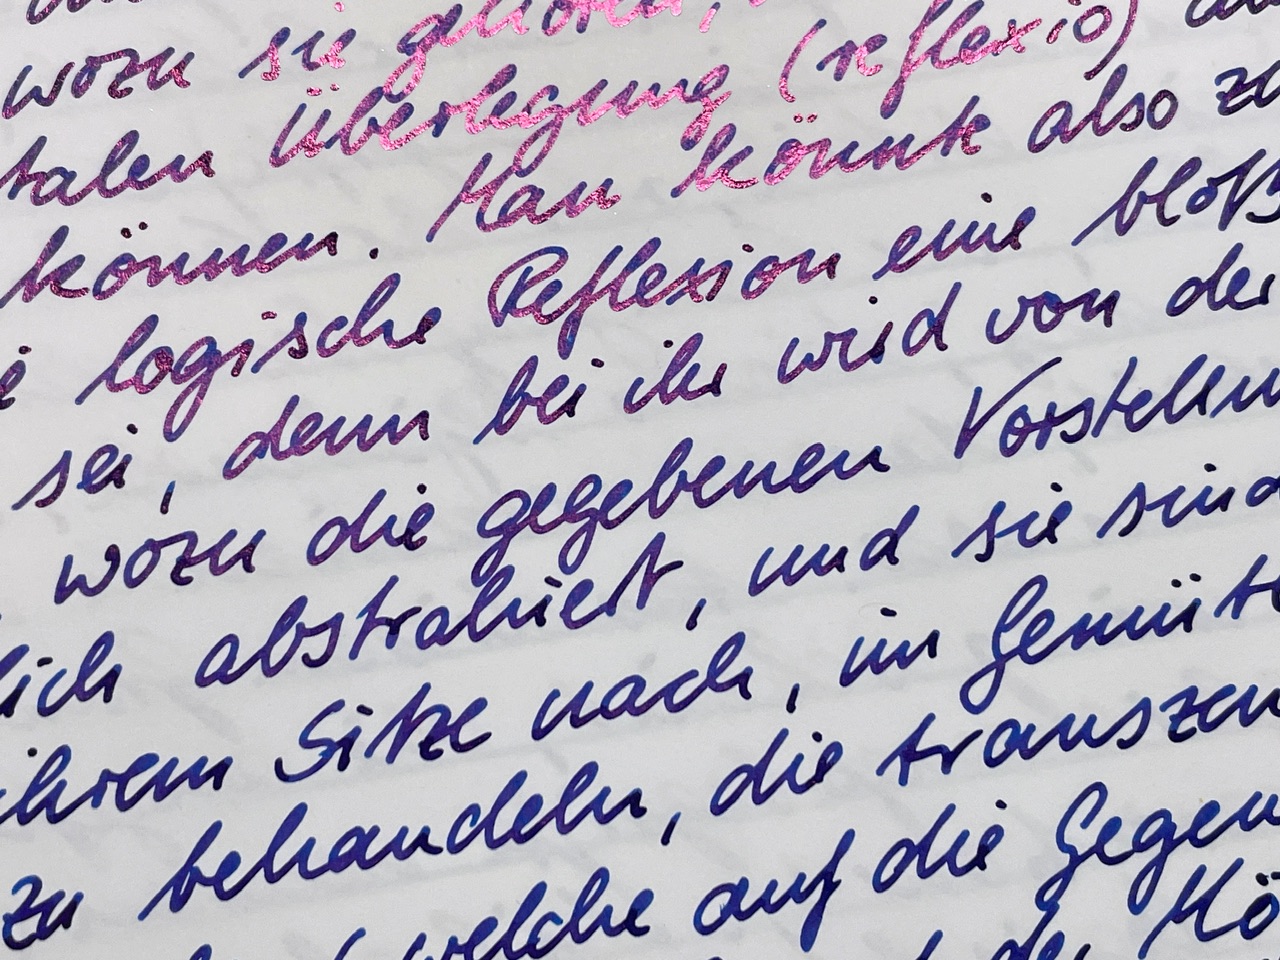 wozu sie gehören,
talen Überlegung (reflexio)
können. Man könnte also
logische Reflexion eine bloß
sei, denn bei ihr wird von der
wozu die gegebenen Vorstellun
lich abstrahiert, und sie sind
ihrem Sitze nach, im Gemüte
zu behandeln, die transzen
welche auf die Gegen